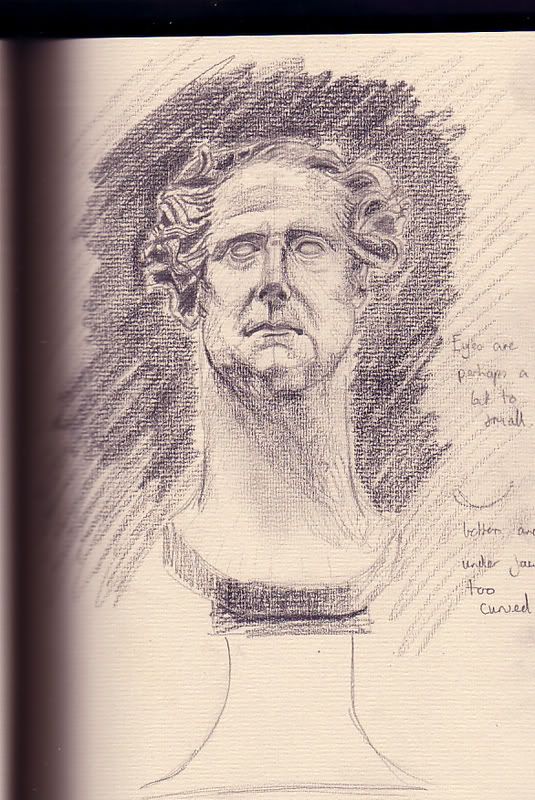 Eyes are
perhaps a
bit to
small.
under jaw
too
curved